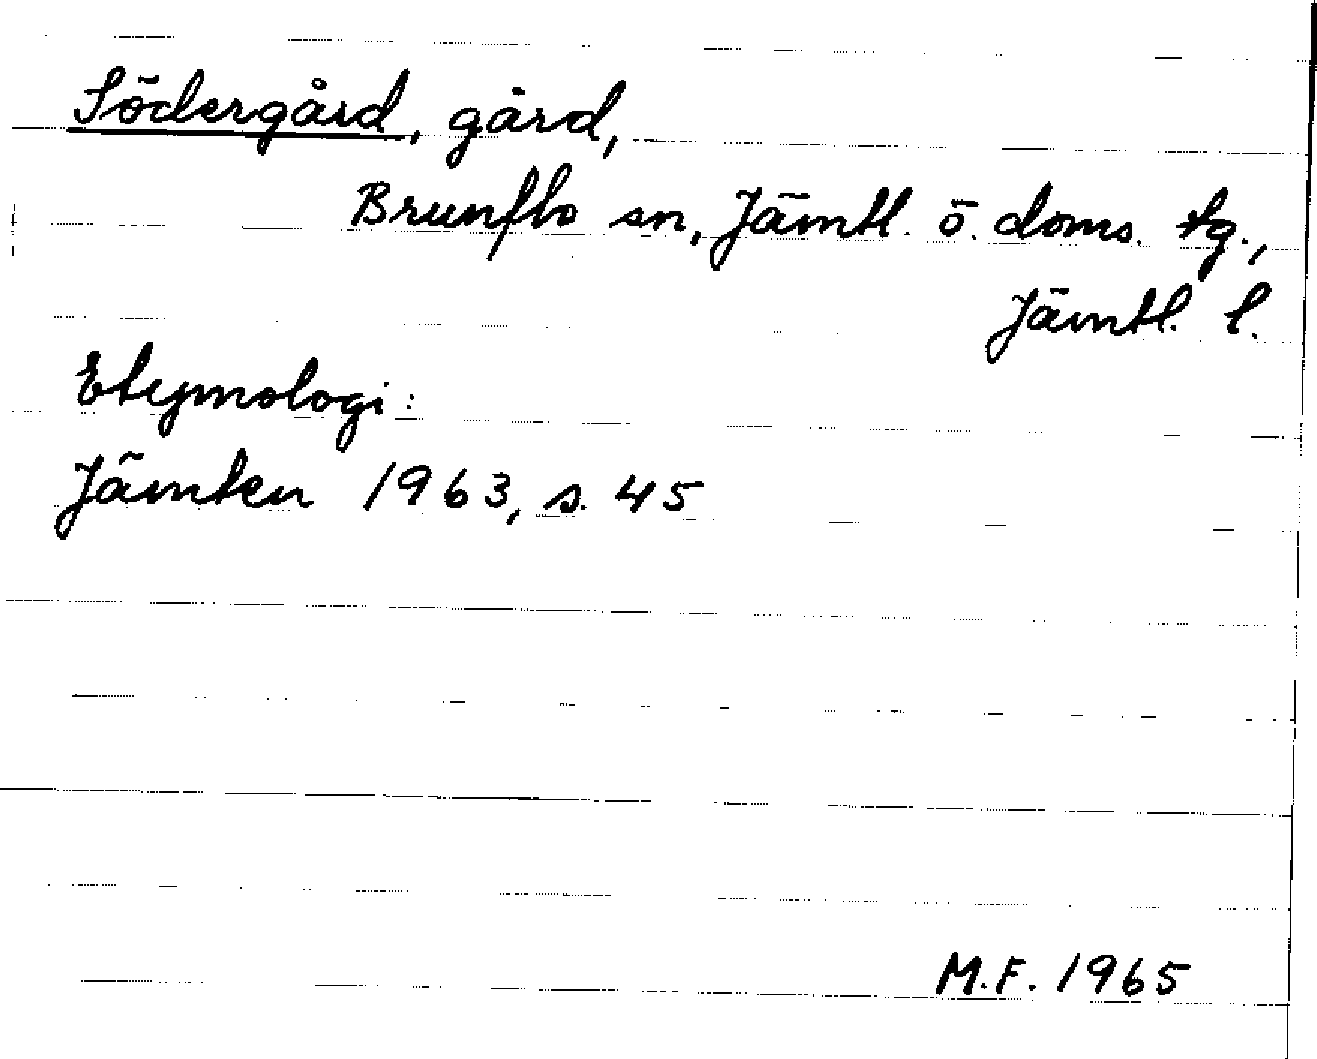 Södergård, gård,
Brunflo sn, Jämtl. ö. doms. tg.,
Jämtl. l.
Etymologi:
Jämten 1963, s. 45
M.F. 1965